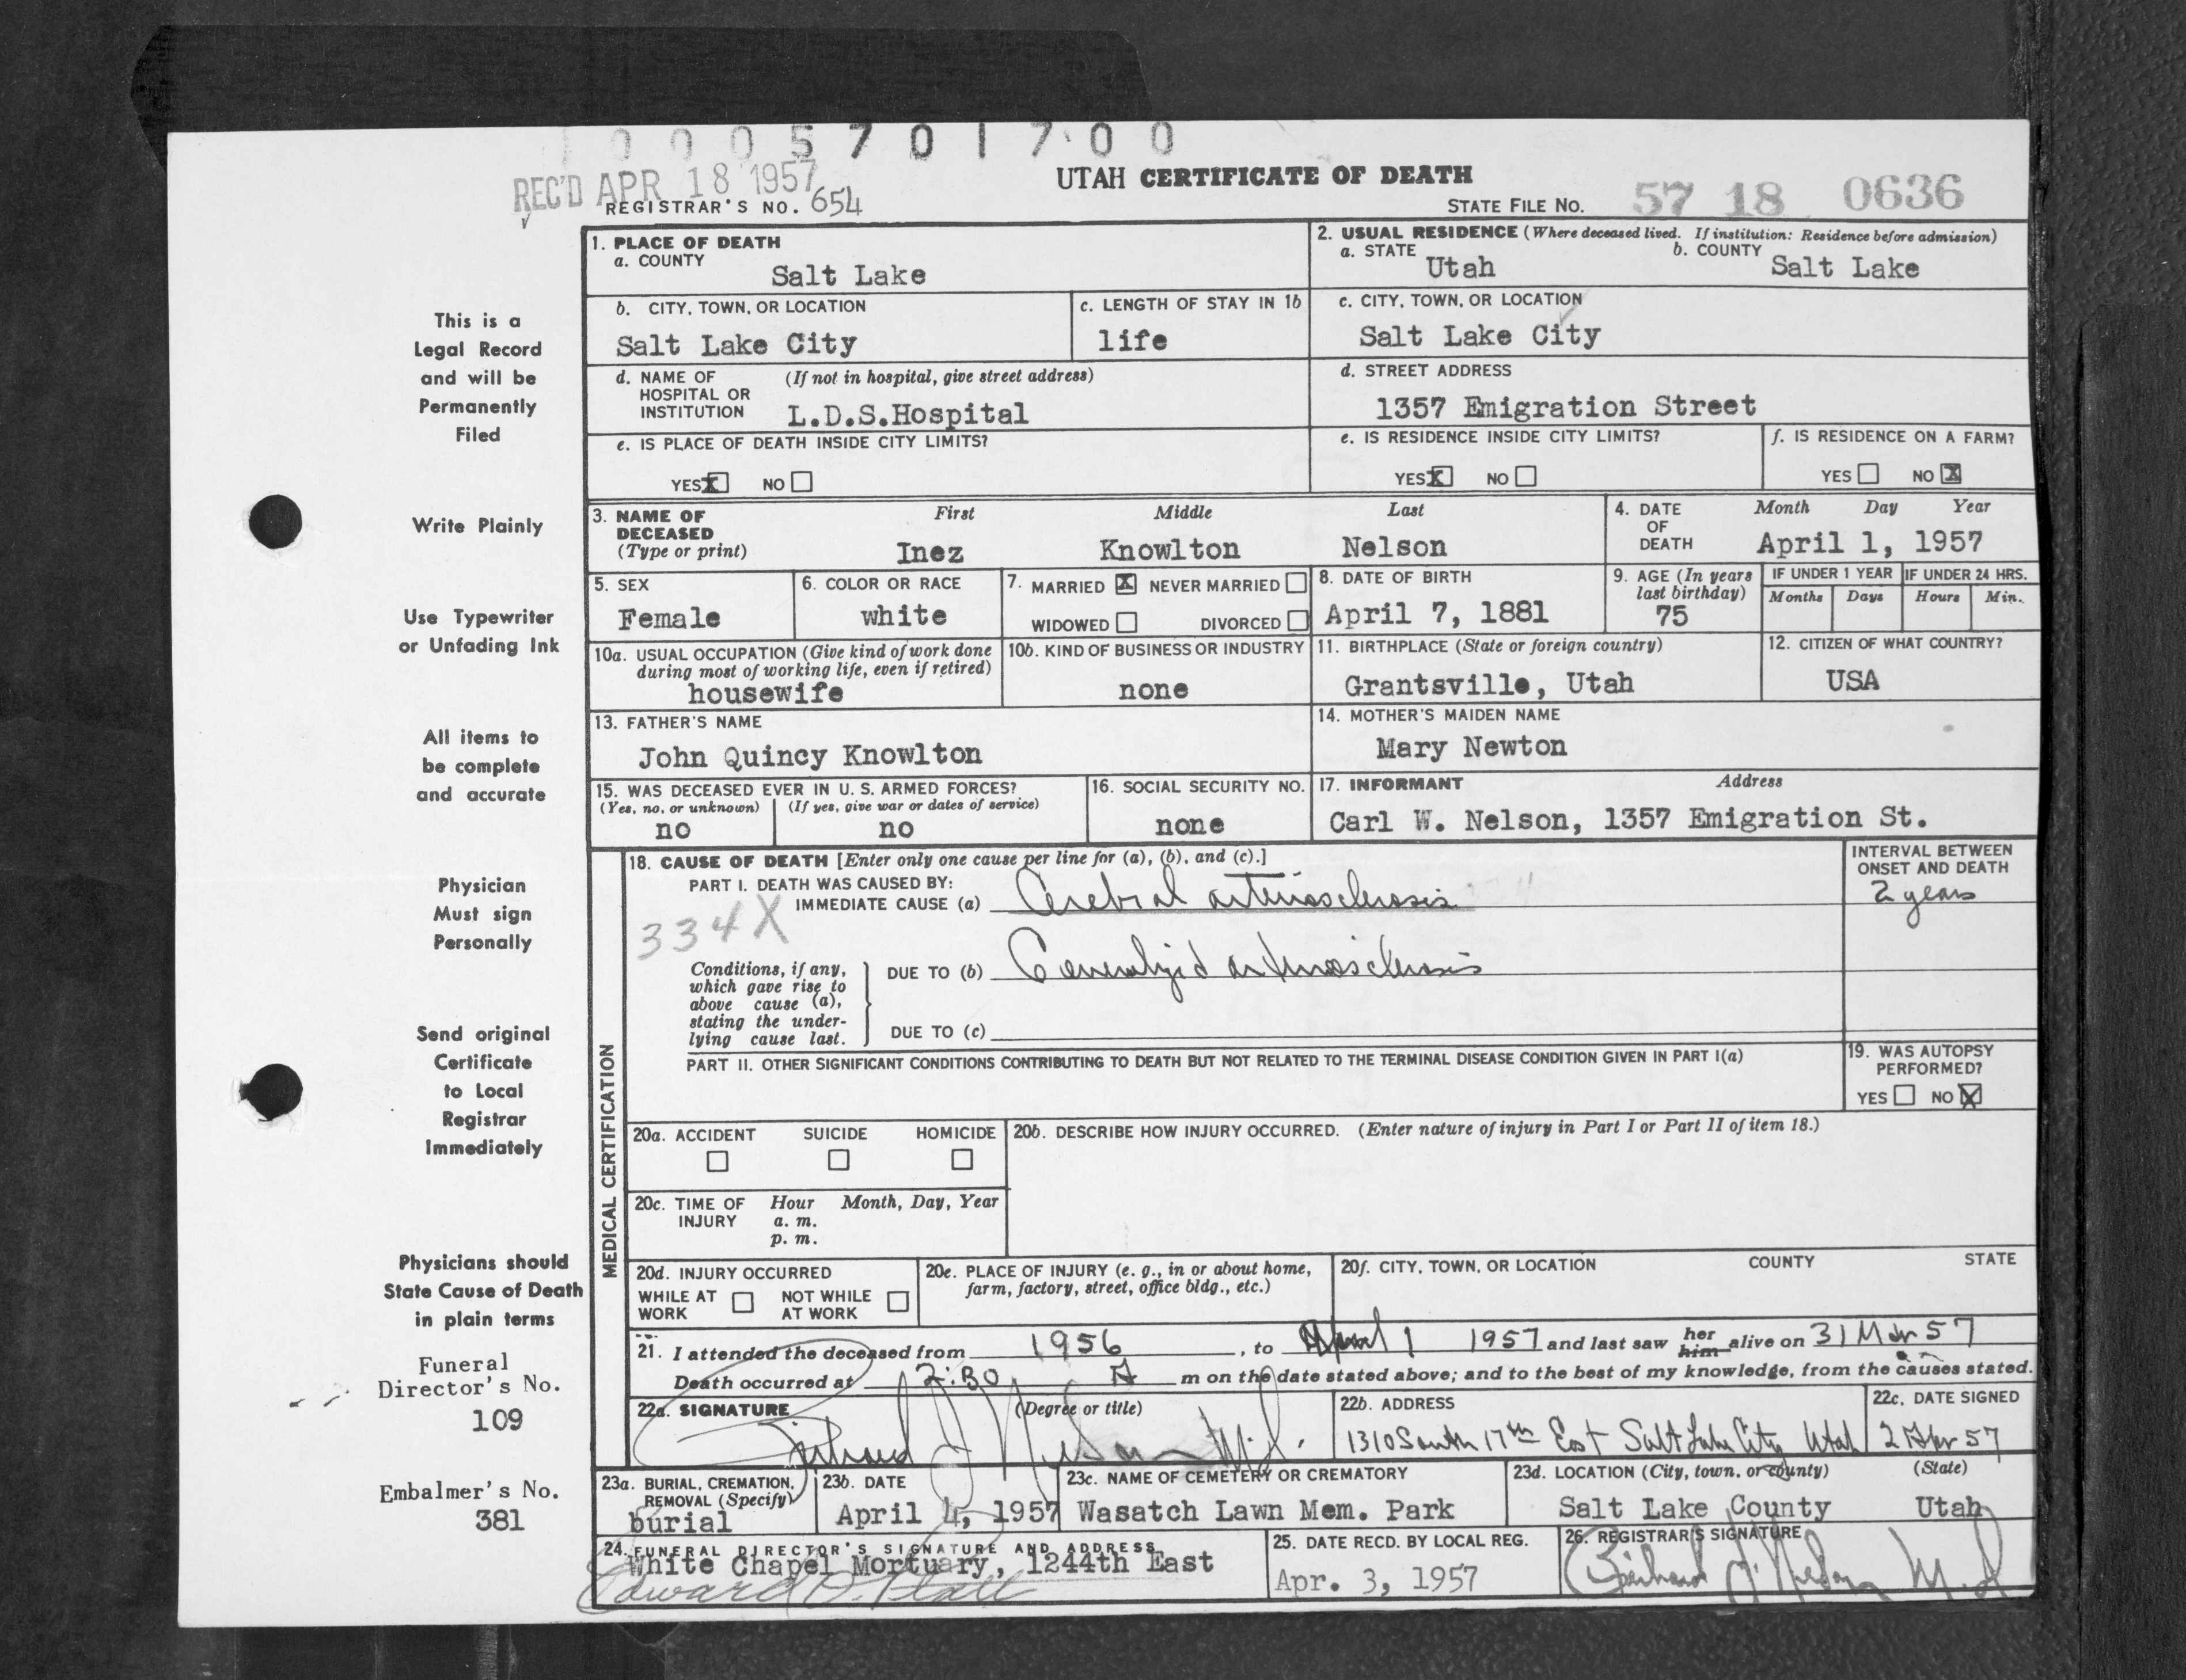 0 0 0 5 7 0 1 7 0 0
REC'D APR 18 1957
UTAH CERTIFICATE OF DEATH
REGISTRAR'S NO. 654
STATE FILE NO. 57 18 0636
This is a
Legal Record
and will be
Permanently
Filed
Write Plainly
Use Typewriter
or Unfading Ink
All items to
be complete
and accurate
Physician
Must sign
Personally
Send original
Certificate
to Local
Registrar
Immediately
Physicians should
State Cause of Death
in plain terms
Funeral
Director's No.
109
Embalmer's No.
381
1. PLACE OF DEATH
a. COUNTY
Salt Lake
2. USUAL RESIDENCE (Where deceased lived. If institution: Residence before admission)
a. STATE b. COUNTY
Utah Salt Lake
b. CITY, TOWN, OR LOCATION
Salt Lake City
c. LENGTH OF STAY IN 1b
life
c. CITY, TOWN, OR LOCATION
Salt Lake City
d. NAME OF (If not in hospital, give street address)
HOSPITAL OR
INSTITUTION L.D.S.Hospital
d. STREET ADDRESS
1357 Emigration Street
e. IS PLACE OF DEATH INSIDE CITY LIMITS?
YES X NO
e. IS RESIDENCE INSIDE CITY LIMITS?
YES X NO
f. IS RESIDENCE ON A FARM?
YES NO X
3. NAME OF First Middle Last
DECEASED
(Type or print) Inez Knowlton Nelson
4. DATE Month Day Year
OF
DEATH April 1, 1957
5. SEX
Female
6. COLOR OR RACE
white
7. MARRIED X NEVER MARRIED
WIDOWED DIVORCED
8. DATE OF BIRTH
April 7, 1881
9. AGE (In years
last birthday)
75
IF UNDER 1 YEAR IF UNDER 24 HRS.
Months Days Hours Min.
10a. USUAL OCCUPATION (Give kind of work done
during most of working life, even if retired)
housewife
10b. KIND OF BUSINESS OR INDUSTRY
none
11. BIRTHPLACE (State or foreign country)
Grantsville, Utah
12. CITIZEN OF WHAT COUNTRY?
USA
13. FATHER'S NAME
John Quincy Knowlton
14. MOTHER'S MAIDEN NAME
Mary Newton
15. WAS DECEASED EVER IN U. S. ARMED FORCES?
(Yes, no, or unknown) (If yes, give war or dates of service)
no no
16. SOCIAL SECURITY NO.
none
17. INFORMANT Address
Carl W. Nelson, 1357 Emigration St.
MEDICAL CERTIFICATION
18. CAUSE OF DEATH [Enter only one cause per line for (a), (b), and (c).]
INTERVAL BETWEEN
ONSET AND DEATH
PART I. DEATH WAS CAUSED BY:
IMMEDIATE CAUSE (a) Cerebral arteriosclerosis 2 years
334X
Conditions, if any,
which gave rise to
above cause (a),
stating the under-
lying cause last.
DUE TO (b) Generalized arteriosclerosis
DUE TO (c)
PART II. OTHER SIGNIFICANT CONDITIONS CONTRIBUTING TO DEATH BUT NOT RELATED TO THE TERMINAL DISEASE CONDITION GIVEN IN PART I(a)
19. WAS AUTOPSY
PERFORMED?
YES NO X
20a. ACCIDENT SUICIDE HOMICIDE
20b. DESCRIBE HOW INJURY OCCURRED. (Enter nature of injury in Part I or Part II of item 18.)
20c. TIME OF Hour Month, Day, Year
INJURY a. m.
p. m.
20d. INJURY OCCURRED
WHILE AT NOT WHILE
WORK AT WORK
20e. PLACE OF INJURY (e. g., in or about home,
farm, factory, street, office bldg., etc.)
20f. CITY, TOWN, OR LOCATION COUNTY STATE
21. I attended the deceased from 1956, to April 1 1957 and last saw her him alive on 31 Mar 57
Death occurred at 2:30 A m on the date stated above; and to the best of my knowledge, from the causes stated.
22a. SIGNATURE (Degree or title)
Richard J Nelson M.D.
22b. ADDRESS
1310 South 17th East Salt Lake City Utah
22c. DATE SIGNED
2 Apr 57
23a. BURIAL, CREMATION,
REMOVAL (Specify)
burial
23b. DATE
April 4, 1957
23c. NAME OF CEMETERY OR CREMATORY
Wasatch Lawn Mem. Park
23d. LOCATION (City, town, or county) (State)
Salt Lake County Utah
24. FUNERAL DIRECTOR'S SIGNATURE AND ADDRESS
White Chapel Mortuary, 1244th East
Edward D. Platt
25. DATE RECD. BY LOCAL REG.
Apr. 3, 1957
26. REGISTRAR'S SIGNATURE
Richard J. Nelson M.D